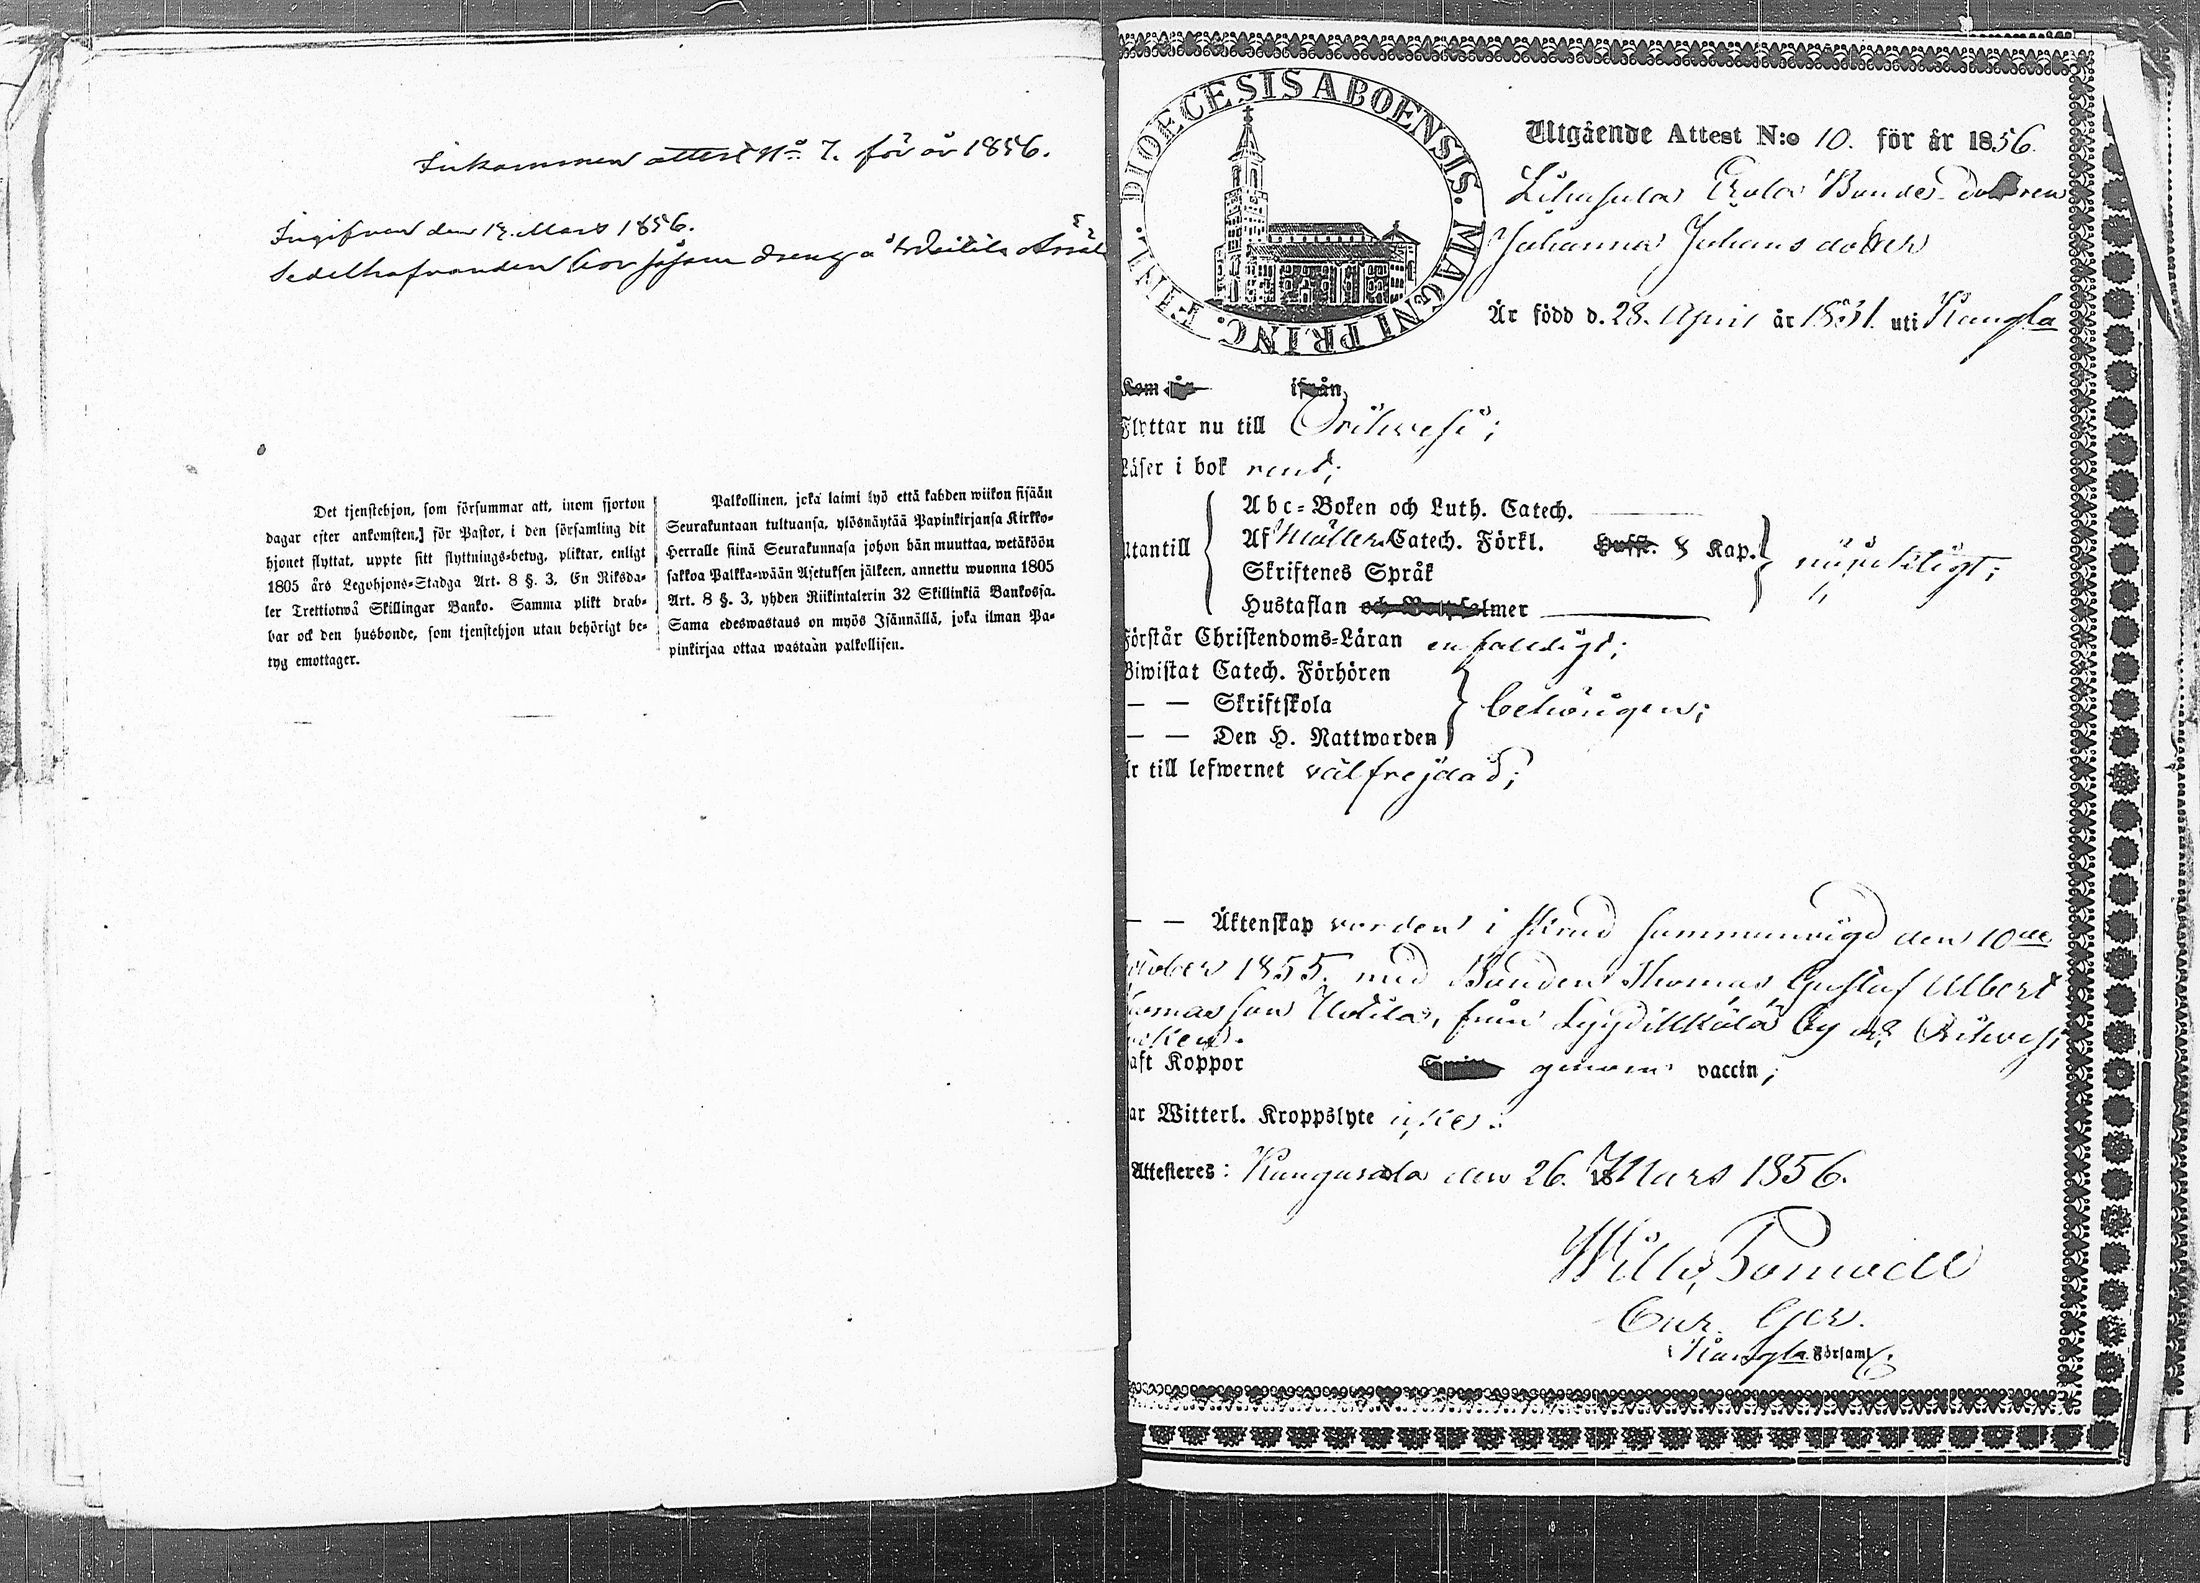 Inkommen attest No 7. för år 1856.
Ingifven den 19. Mars 1856.
Sedelhafvanden bor såsom dreng å
Det tjenstehjon, som försummar att, inom fjorton
dagar efter ankomsten, för Pastor, i den församling dit
hjonet flyttat, uppte sitt flyttnings-betyg, pliktar, enligt
1805 års Legohjons-Stadga Art. 8 §. 3, En Riksda-
ler Trettiotwå Skillingar Banko. Samma plikt drab-
bar ock den husbonde, som tjenstehjon utan behörigt be-
tyg emottager.
Palkollinen, joka laimi lyö että kahden wiikon sisään
Seurakuntaan tultuansa, ylösnäytää Papinkirjansa Kirkko-
Herralle siinä Seurakunnasa johon hän muuttaa, wetäköön
sakkoa Palkka-wään Asetuksen jälkeen, annettu wuonna 1805
Art. 8 §. 3, yhden Riikintalerin 32 Skillinkiä Bankossa.
Sama edeswastaus on myös Isännällä, joka ilman Pa-
pinkirjaa ottaa wastaan palkollisen.
DIOECESIS ABOENSIS. MAGNI PRINC. FINL.
Utgående Attest N:o 10. för år 1856.
Lihasula Bonde dottren
Johanna Johansdotter
Är född d. 28. April år 1831. uti Kangla
Kom år ifrån
Flyttar nu till Orihvesi;
Läser i bok rent;
Utantill
Abc-Boken och Luth. Catech.
Af Möllers Catech. Förkl. Hufst. 8 Kap.
Skriftenes Språk
Hustaflan och Botpsalmer
nöjaktigt;
Förstår Christendoms-Läran enfaldigt;
Biwistat Catech. Förhören
— — Skriftskola
— — Den H. Nattwarden
behörigen;
Är till lefwernet välfrejdad;
— — Äktenskap vorden i stånd sammanvigd den 10de
October 1855. med Bonden Thomas Gustaf Albert
Thomasson Uotila, från by af Orihvesi
socken.
Haft Koppor genom vaccin;
Har Witterl. Kroppslyte icke.
Attesteres: Kangasala den 26. Mars 1856.
Wilh.
Cur. Ger.
i Kangla Församl